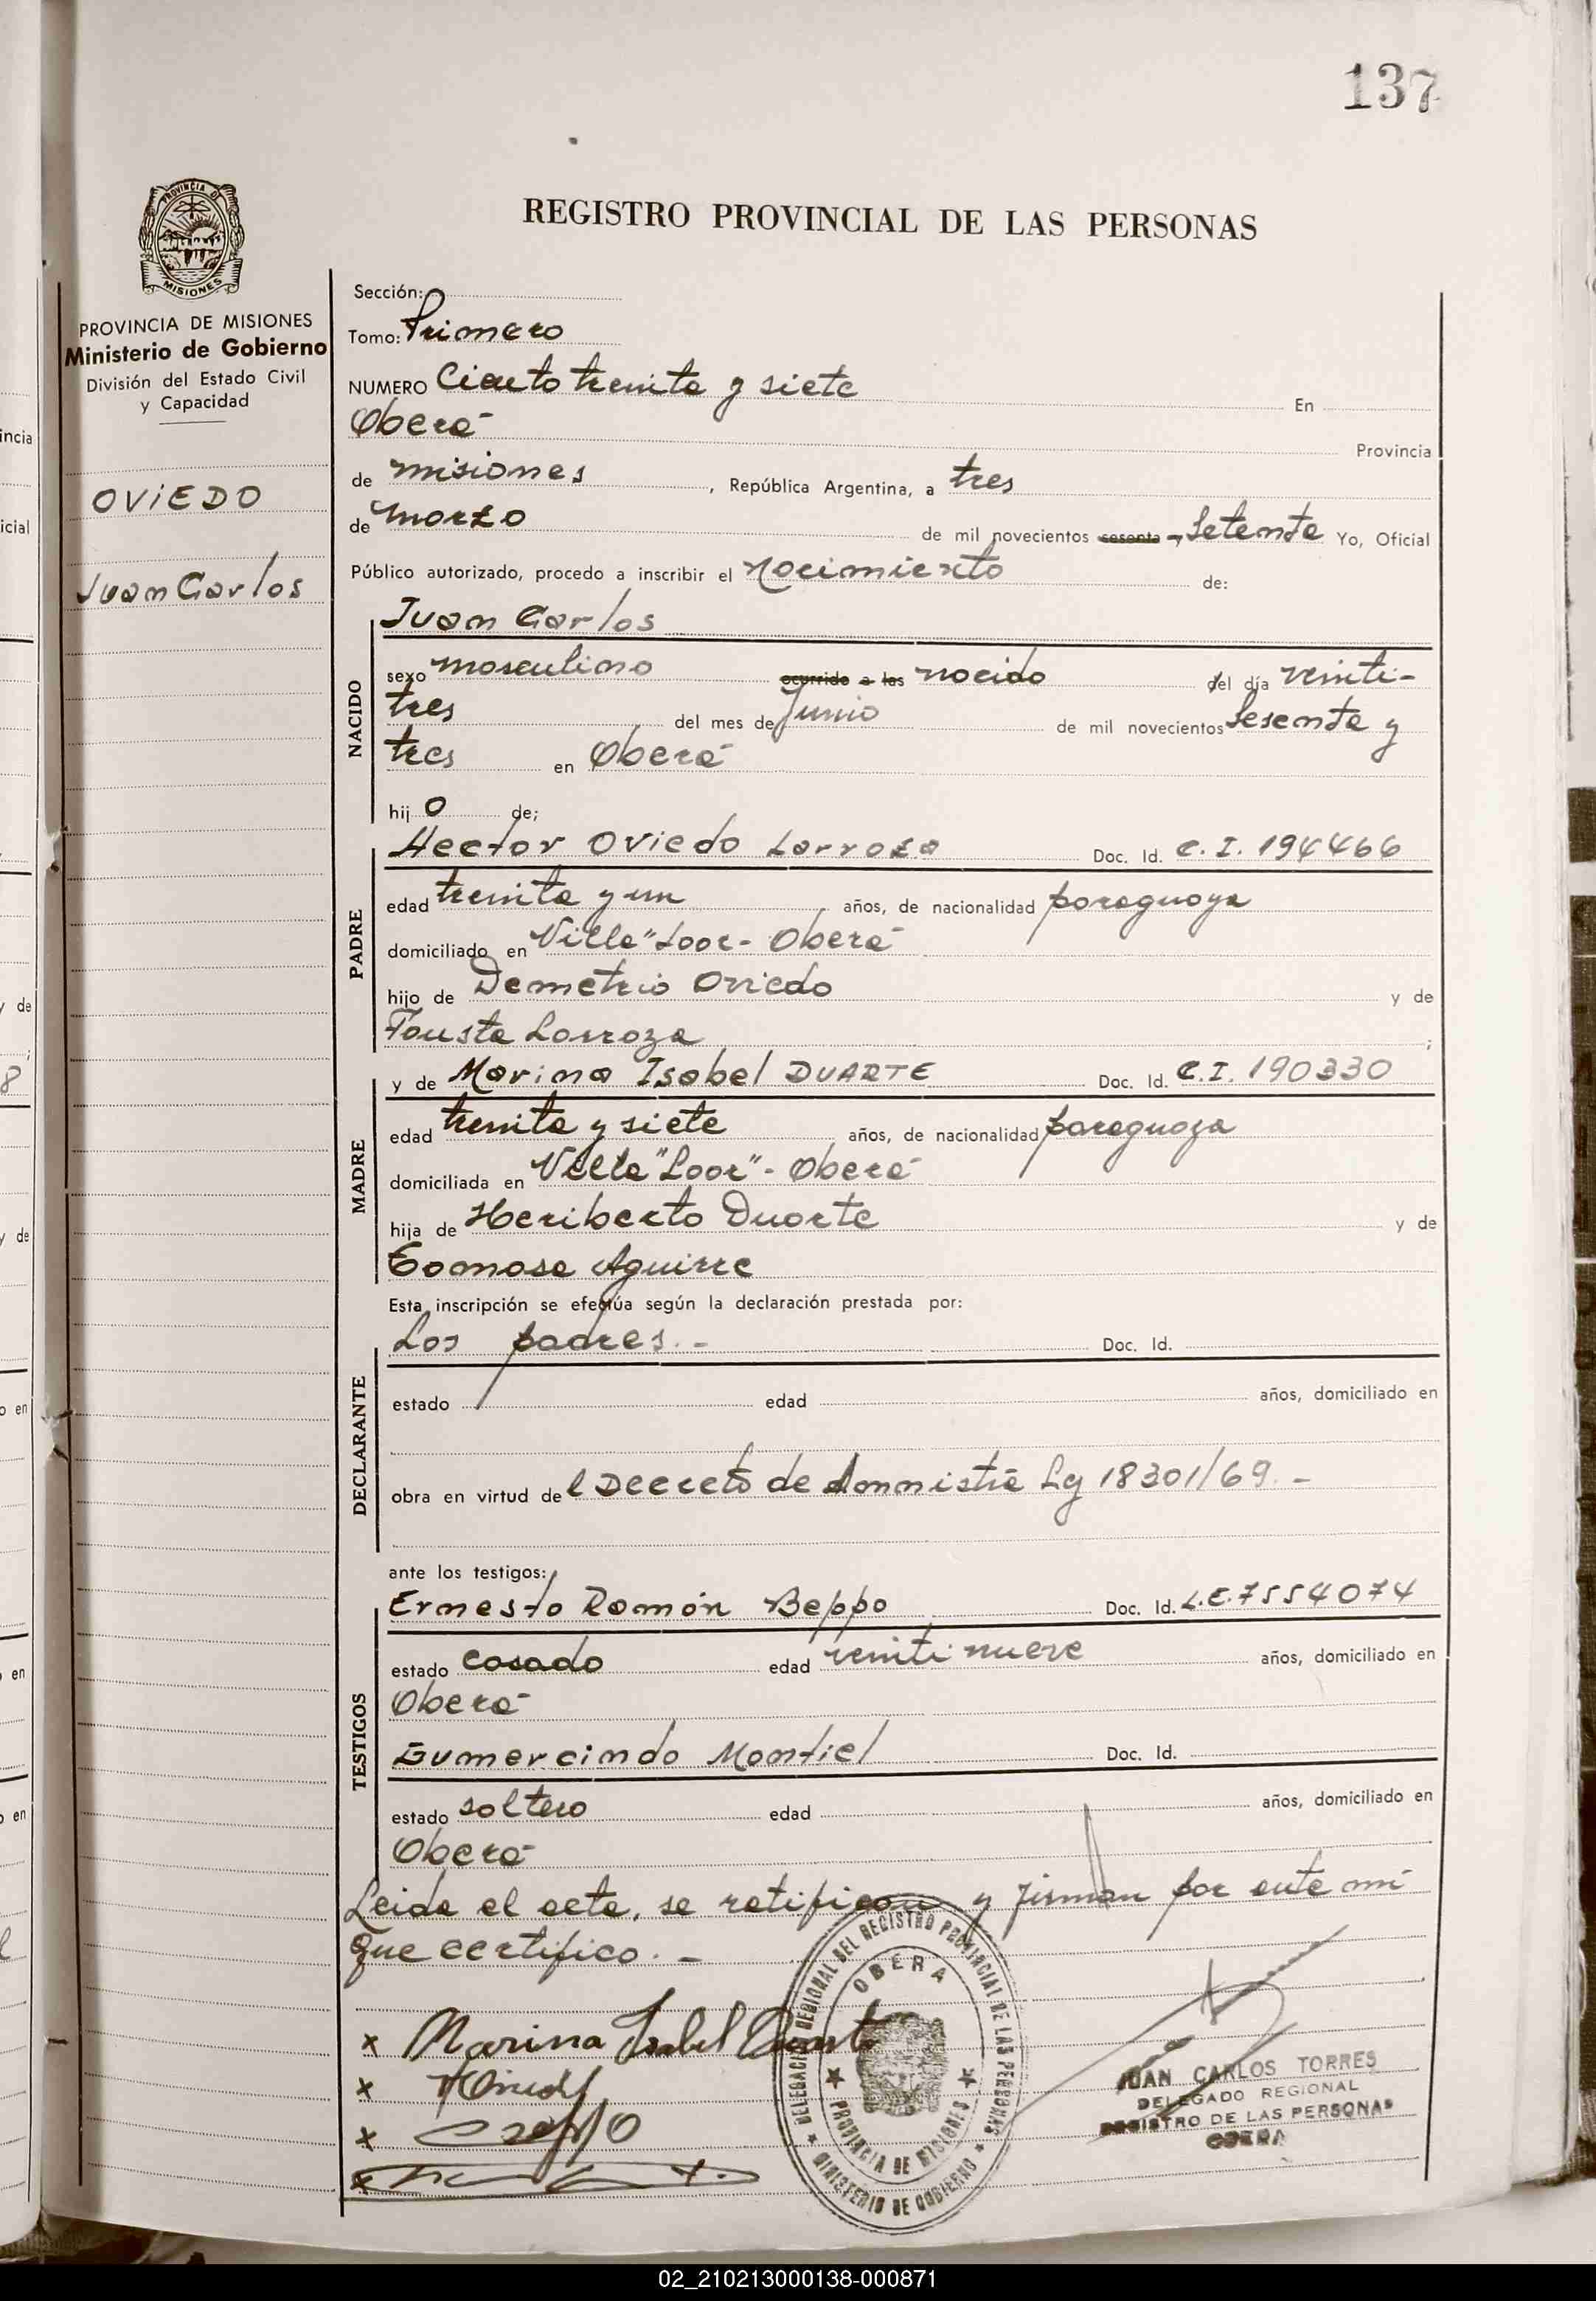 137
REGISTRO PROVINCIAL DE LAS PERSONAS
PROVINCIA DE MISIONES
Ministerio de Gobierno
División del Estado Civil
y Capacidad
OVIEDO
Juan Carlos
Sección:
Tomo: Primero
NUMERO Ciento treinta y siete En
Oberá Provincia
de misiones, República Argentina, a tres
de marzo de mil novecientos sesenta y Setenta Yo, Oficial
Público autorizado, procedo a inscribir el nacimiento de:
Juan Carlos
NACIDO
sexo masculino ocurrido a las nacido del día veinti-
tres del mes de Junio de mil novecientos Sesenta y
tres en Oberá
hijo de;
Hector Oviedo Larroza Doc. Id. C.I. 194466
PADRE
edad treinta y un años, de nacionalidad paraguaya
domiciliado en Villa "Loor- Oberá
hijo de Demetrio Oviedo y de
Fausta Larroza;
y de Marina Isabel DUARTE Doc. Id. C.I. 190330
MADRE
edad treinta y siete años, de nacionalidad paraguaya
domiciliada en Villa "Loor"- Oberá
hija de Heriberto Duarte y de
Aguirre
Esta inscripción se efectúa según la declaración prestada por:
Los padres.- Doc. Id.
DECLARANTE
estado edad años, domiciliado en
obra en virtud del Decreto de Amnistia Ley 18301/69.-
ante los testigos:
Ernesto Ramón Beppo Doc. Id. L.E. 7554074
TESTIGOS
estado casado edad veinti nueve años, domiciliado en
Oberá
Gumercindo Montiel Doc. Id.
estado soltero edad años, domiciliado en
Oberá
Leida el acta, se ratifican y firman por ante mi
que certifico.-
x Marina Isabel Duarte
x
x
x
DELEGACION REGIONAL DEL REGISTRO PROVINCIAL DE LAS PERSONAS
OBERA
PROVINCIA DE MISIONES
MINISTERIO DE GOBIERNO
JUAN CARLOS TORRES
DELEGADO REGIONAL
REGISTRO DE LAS PERSONAS
OBERA
02_210213000138-000871